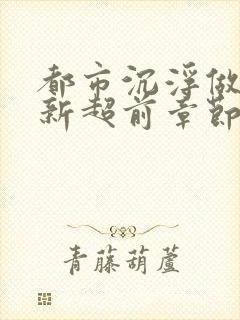 都市沉浮做
新超前章節
青藤葫蘆